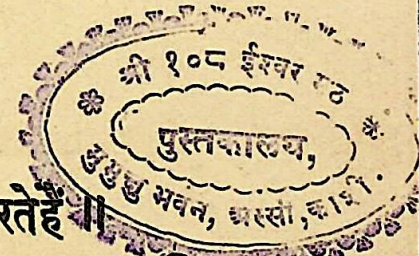 श्री १०८ ईश्वर मठ
पुस्तकालय,
मुमुक्षु भवन, अस्सी, काशी.
रतेहैं ॥